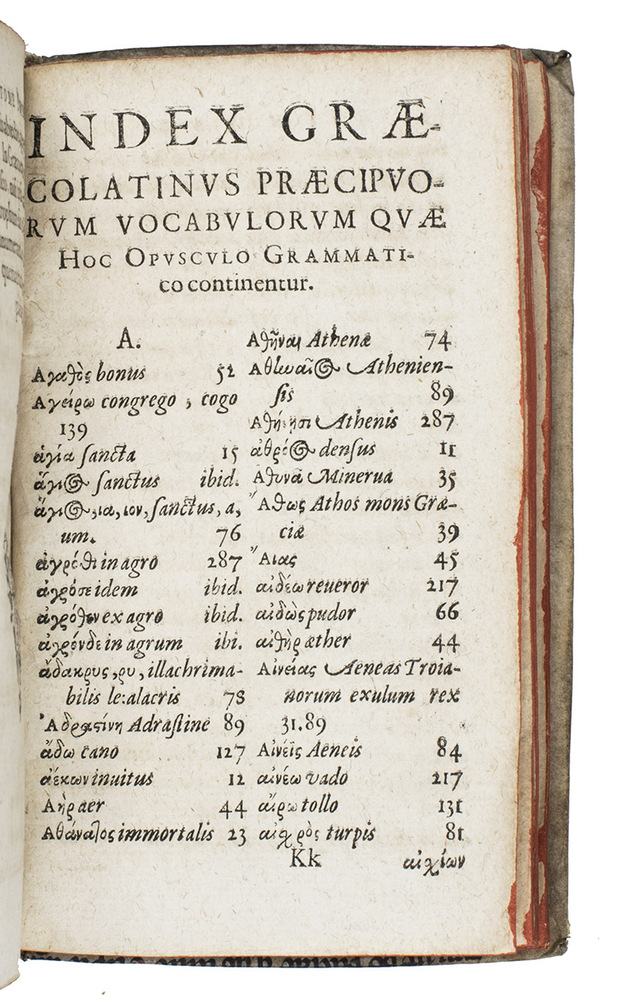 INDEX GRÆ-
COLATINVS PRÆCIPVO-
RVM VOCABVLORVM QVÆ
HOC OPVSCVLO GRAMMATI-
co continentur.
A.
Αγαθὸς bonus 52
Αγείρω congrego , cogo
139
ἁγία sancta 15
ἅγιος sanctus ibid.
ἅγιος, ια, ιον, sanctus, a,
um. 76
ἀγρόθι in agro 287
ἀγρόσε idem ibid.
ἀγρόθεν ex agro ibid.
ἀγρόνδε in agrum ibi.
ἄδακρυς, ρυ, illachrima-
bilis le: alacris 78
Ἀδραστίνη Adrastine 89
ἄδω cano 127
ἀέκων inuitus 12
Αὴρ aer 44
Αθάνατος immortalis 23
Αθῆναι Athenæ 74
Αθηναῖος Athenien-
sis 89
Αθήνησι Athenis 287
ἀθρόος densus 11
Αθηνᾶ Minerua 35
Ἄθως Athos mons Græ-
ciæ 39
Ἄιας 45
αἰδέω reueror 217
αἰδὼς pudor 66
αἰθὴρ æther 44
Αἰνείας Aeneas Troia-
norum exulum rex
31.89
Αἰνεῒς Aeneis 84
αἰνέω vado 217
αἴρω tollo 131
αἰσχρὸς turpis 81
Kk αἰσχίων